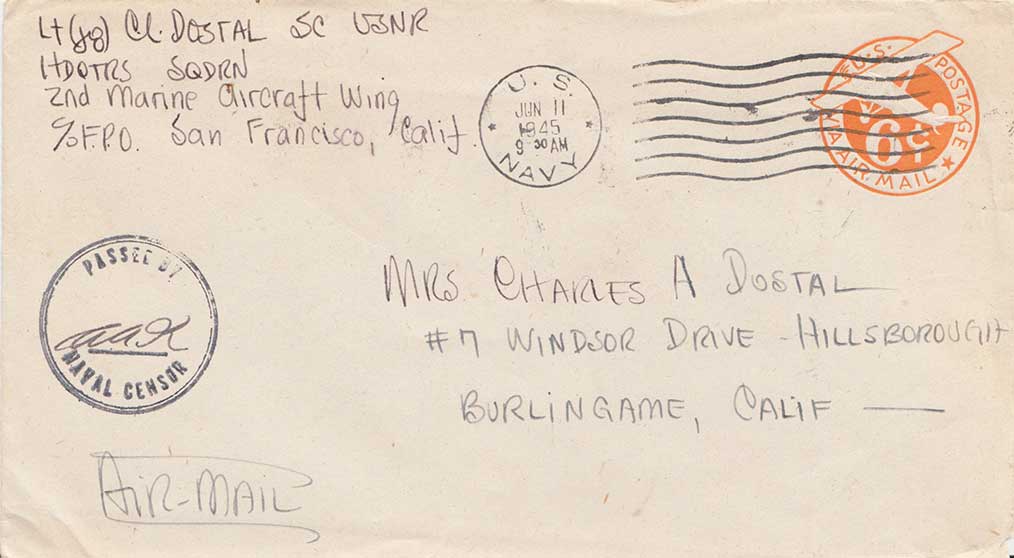 Lt(jg) CL. DOSTAL SC USNR
HDQTRS SQDRN
2nd Marine Aircraft Wing
c/o F.P.O. San Francisco, Calif.
U. S.
JUN 11
1945
9 30 AM
NAVY
U.S. POSTAGE
6¢
VIA AIR MAIL
PASSED BY
NAVAL CENSOR
MRS. CHARLES A DOSTAL
#7 WINDSOR DRIVE - HILLSBOROUGH
BURLINGAME, CALIF —
AIR-MAIL